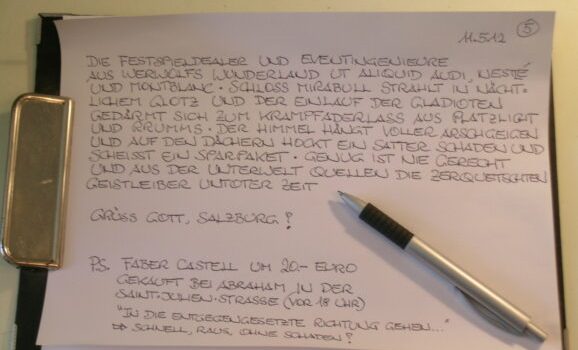 11.5.12 5
DIE FESTSPIELDEALER UND EVENTINGENIEURE
AUS WERWOLFS WUNDERLAND UT ALIQUID AUDI, NESTLÉ
UND MONTBLANC · SCHLOSS MIRABULL STRAHLT IN NÄCHT-
LICHEM GLOTZ UND DER EINLAUF DER GLADIOTEN
GEDÄRMT SICH ZUM KRAMPFADERLASS AUS PLATZLICHT
UND RRUMMS · DER HIMMEL HÄNGT VOLLER ARSCHGEIGEN
UND AUF DEN DÄCHERN HOCKT EIN SATTER SCHADEN UND
SCHEISST EIN SPARPAKET · GENUG IST NIE GERECHT
UND AUS DER UNTERWELT QUELLEN DIE ZERQUETSCHTEN
GEISTLEIBER UNTOTER ZEIT
GRÜSS GOTT, SALZBURG?
P.S. FABER CASTELL UM 20.- EURO
GEKAUFT BEI ABRAHAM IN DER
SAINT-JULIEN-STRASSE (VOR 18 UHR)
"IN DIE ENTGEGENGESETZTE RICHTUNG GEHEN..."
⇨ SCHNELL, RAUS, OHNE SCHADEN?